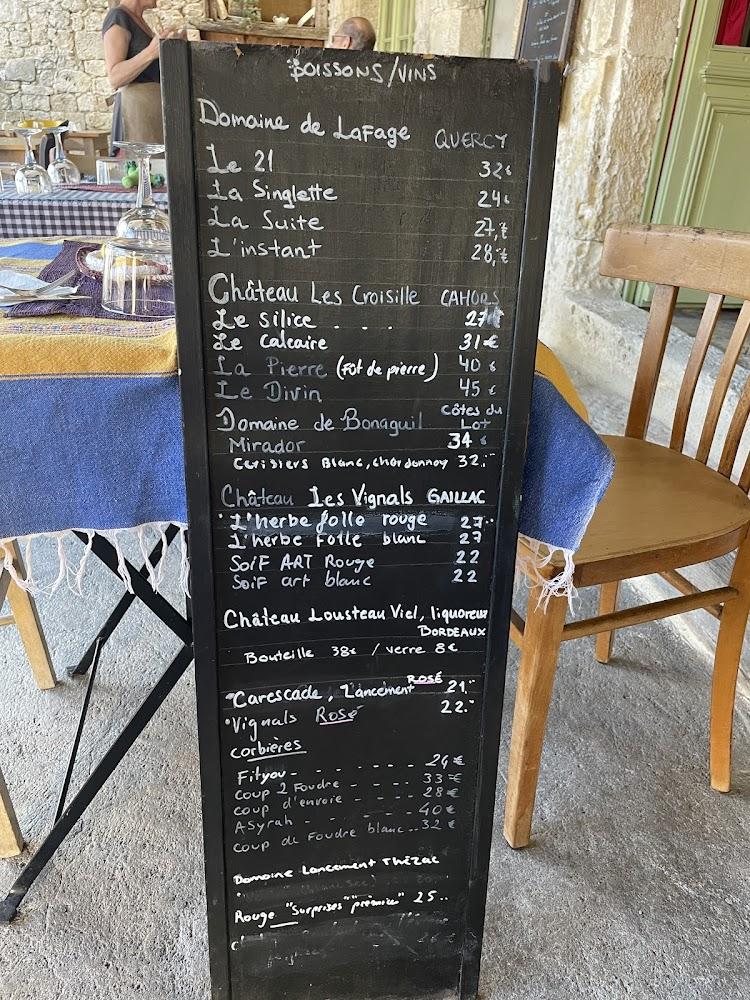 BOISSONS/VINS
Domaine de Lafage QUERCY
Le 21 32€
La Singlette 24€
La Suite 27,€
L'instant 28,€
Château Les Croisille CAHORS
Le Silice . . . 27€
Le Calcaire 31€
La Pierre (Fût de pierre) 40€
Le Divin 45€
Domaine de Bonaguil Côtes du Lot
Mirador 34€
Cerisiers Blanc, chardonnay 32."
Château Les Vignals GAILLAC
L'herbe folle rouge 27..
L'herbe Folle blanc 27
Soif ART Rouge 22
Soif art blanc 22
Château Lousteau Viel, liquoreux
BORDEAUX
Bouteille 38€ / verre 8€
Carescade, Lancement ROSÉ 21."
Vignals Rosé 22."
corbières
Fityou - - - - - - 24€
Coup 2 Foudre - - - - 33€
coup d'envoie - - - - 28€
Asyrah - - - - - - 40€
coup de Foudre blanc .. 32€
Domaine Lancement Thézac
Rouge "Surprises" "prémice" 25..